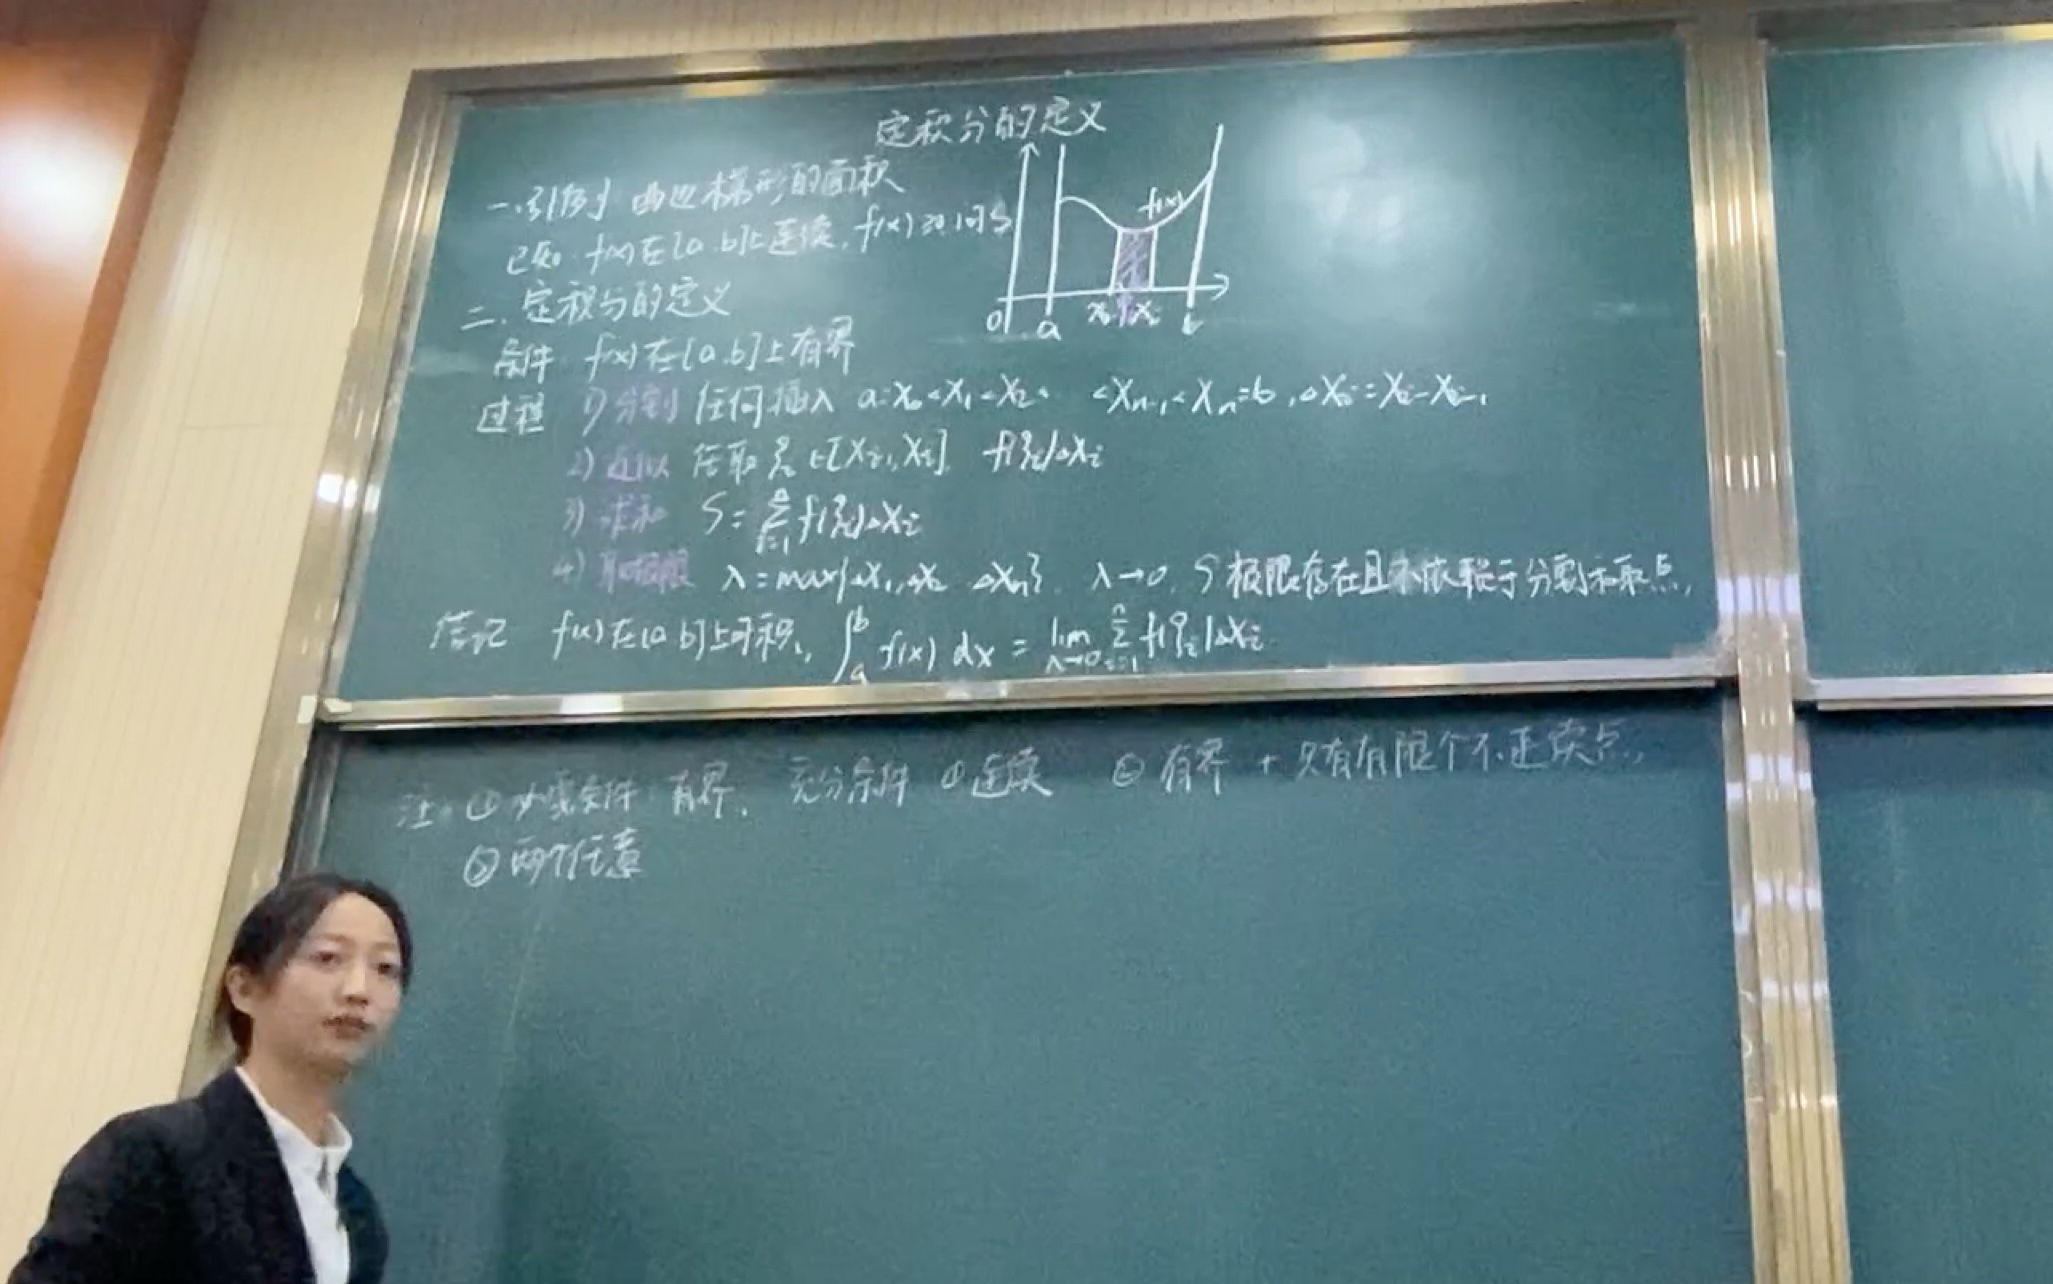 定积分的定义
一.引例 曲边梯形的面积
已知 f(x)在[a,b]上连续,f(x)≥0,问S
f(x)
0 a xᵢ₋₁ ξᵢ xᵢ b
二.定积分的定义
条件 f(x)在[a,b]上有界
过程 1)分割 任何插入 a=x₀<x₁<x₂< <xₙ₋₁<xₙ=b,△xᵢ=xᵢ-xᵢ₋₁
2)近似 任取ξᵢ∈[xᵢ₋₁,xᵢ], f(ξᵢ)△xᵢ
3)求和 S=∑ⁿᵢ₌₁f(ξᵢ)△xᵢ
4)取极限 λ=max{△x₁,△x₂ △xₙ}, λ→0, S极限存在且不依赖于分割和取点,
f(x)在[a,b]上可积, ∫ₐᵇ f(x) dx = lim λ→0 ∑ⁿᵢ₌₁ f(ξᵢ)△xᵢ
注 ①必要条件 有界, 充分条件 ①连续 ②有界+只有有限个不连续点,
②两个任意